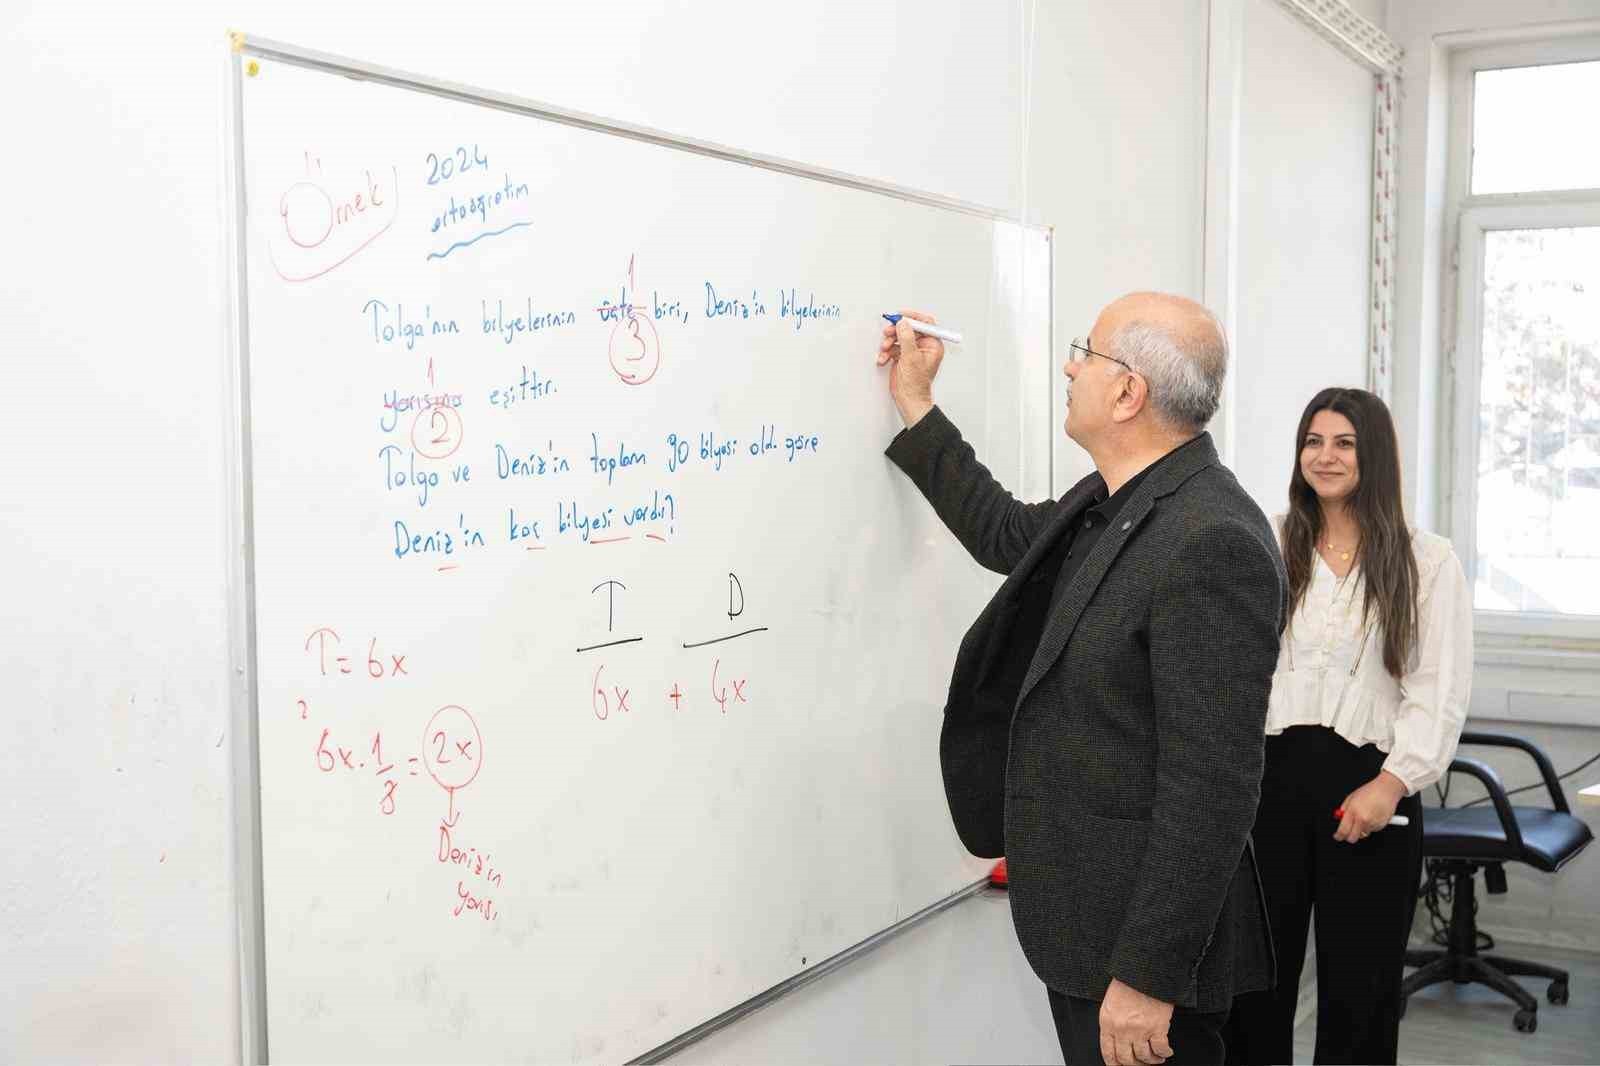 Örnek
2024
ortaöğretim
Tolga'nın bilyelerinin üçte biri, Deniz'in bilyelerinin
1
3
yarısına eşittir.
1
2
Tolga ve Deniz'in toplam 90 bilyesi old. göre
Deniz'in kaç bilyesi vardır?
T D
6x + 4x
T = 6x
2
6x . 1/3 = 2x
Deniz'in
yarısı